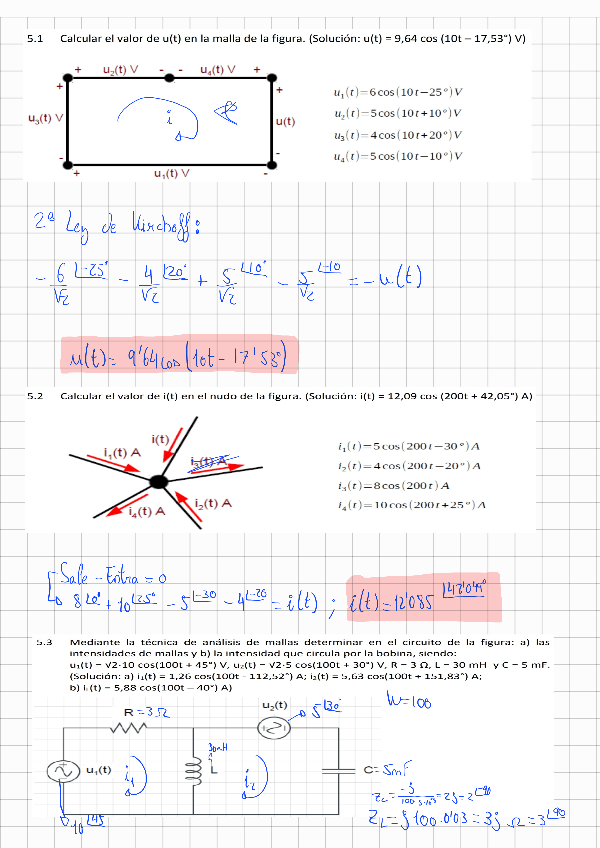 5.1 Calcular el valor de u(t) en la malla de la figura. (Solución: u(t) = 9,64 cos (10t – 17,53°) V)
+ u₂(t) V - - u₄(t) V +
u₁(t)=6cos(10t−25°)V
u₂(t)=5cos(10t+10°)V
u₃(t)=4cos(10t+20°)V
u₄(t)=5cos(10t−10°)V
+ +
u₃(t) V i u(t)
- -
+ u₁(t) V -
2ª Ley de Kirchoff:
- 6/√2 ∠-25° - 4/√2 ∠20° + 5/√2 ∠10° - 5/√2 ∠-10 = - u(t)
u(t) = 9'64 cos (10t - 17'53°)
5.2 Calcular el valor de i(t) en el nudo de la figura. (Solución: i(t) = 12,09 cos (200t + 42,05°) A)
i(t)
i₁(t) A i₃(t) A
i₂(t) A
i₄(t) A
i₁(t)=5cos(200t−30°)A
i₂(t)=4cos(200t−20°)A
i₃(t)=8cos(200t)A
i₄(t)=10cos(200t+25°)A
Sale - Entra = 0
8∠0° + 10∠25° - 5∠-30 - 4∠-20 = i(t) ; i(t) = 12'085 ∠42'049°
5.3 Mediante la técnica de análisis de mallas determinar en el circuito de la figura: a) las
intensidades de mallas y b) la intensidad que circula por la bobina, siendo:
u₁(t) = √2·10 cos(100t + 45°) V, u₂(t) = √2·5 cos(100t + 30°) V, R = 3 Ω, L = 30 mH y C = 5 mF.
(Solución: a) i₁(t) = 1,26 cos(100t - 112,52°) A; i₂(t) = 5,63 cos(100t + 151,83°) A;
b) iₗ(t) = 5,88 cos(100t – 40°) A)
R = 3Ω
u₂(t)
5∠30°
W = 100
30mH
u₁(t) i₁ L i₂
C = 5mF
10∠45
Z_L = j 100·0'03 = 3j Ω = 3∠90